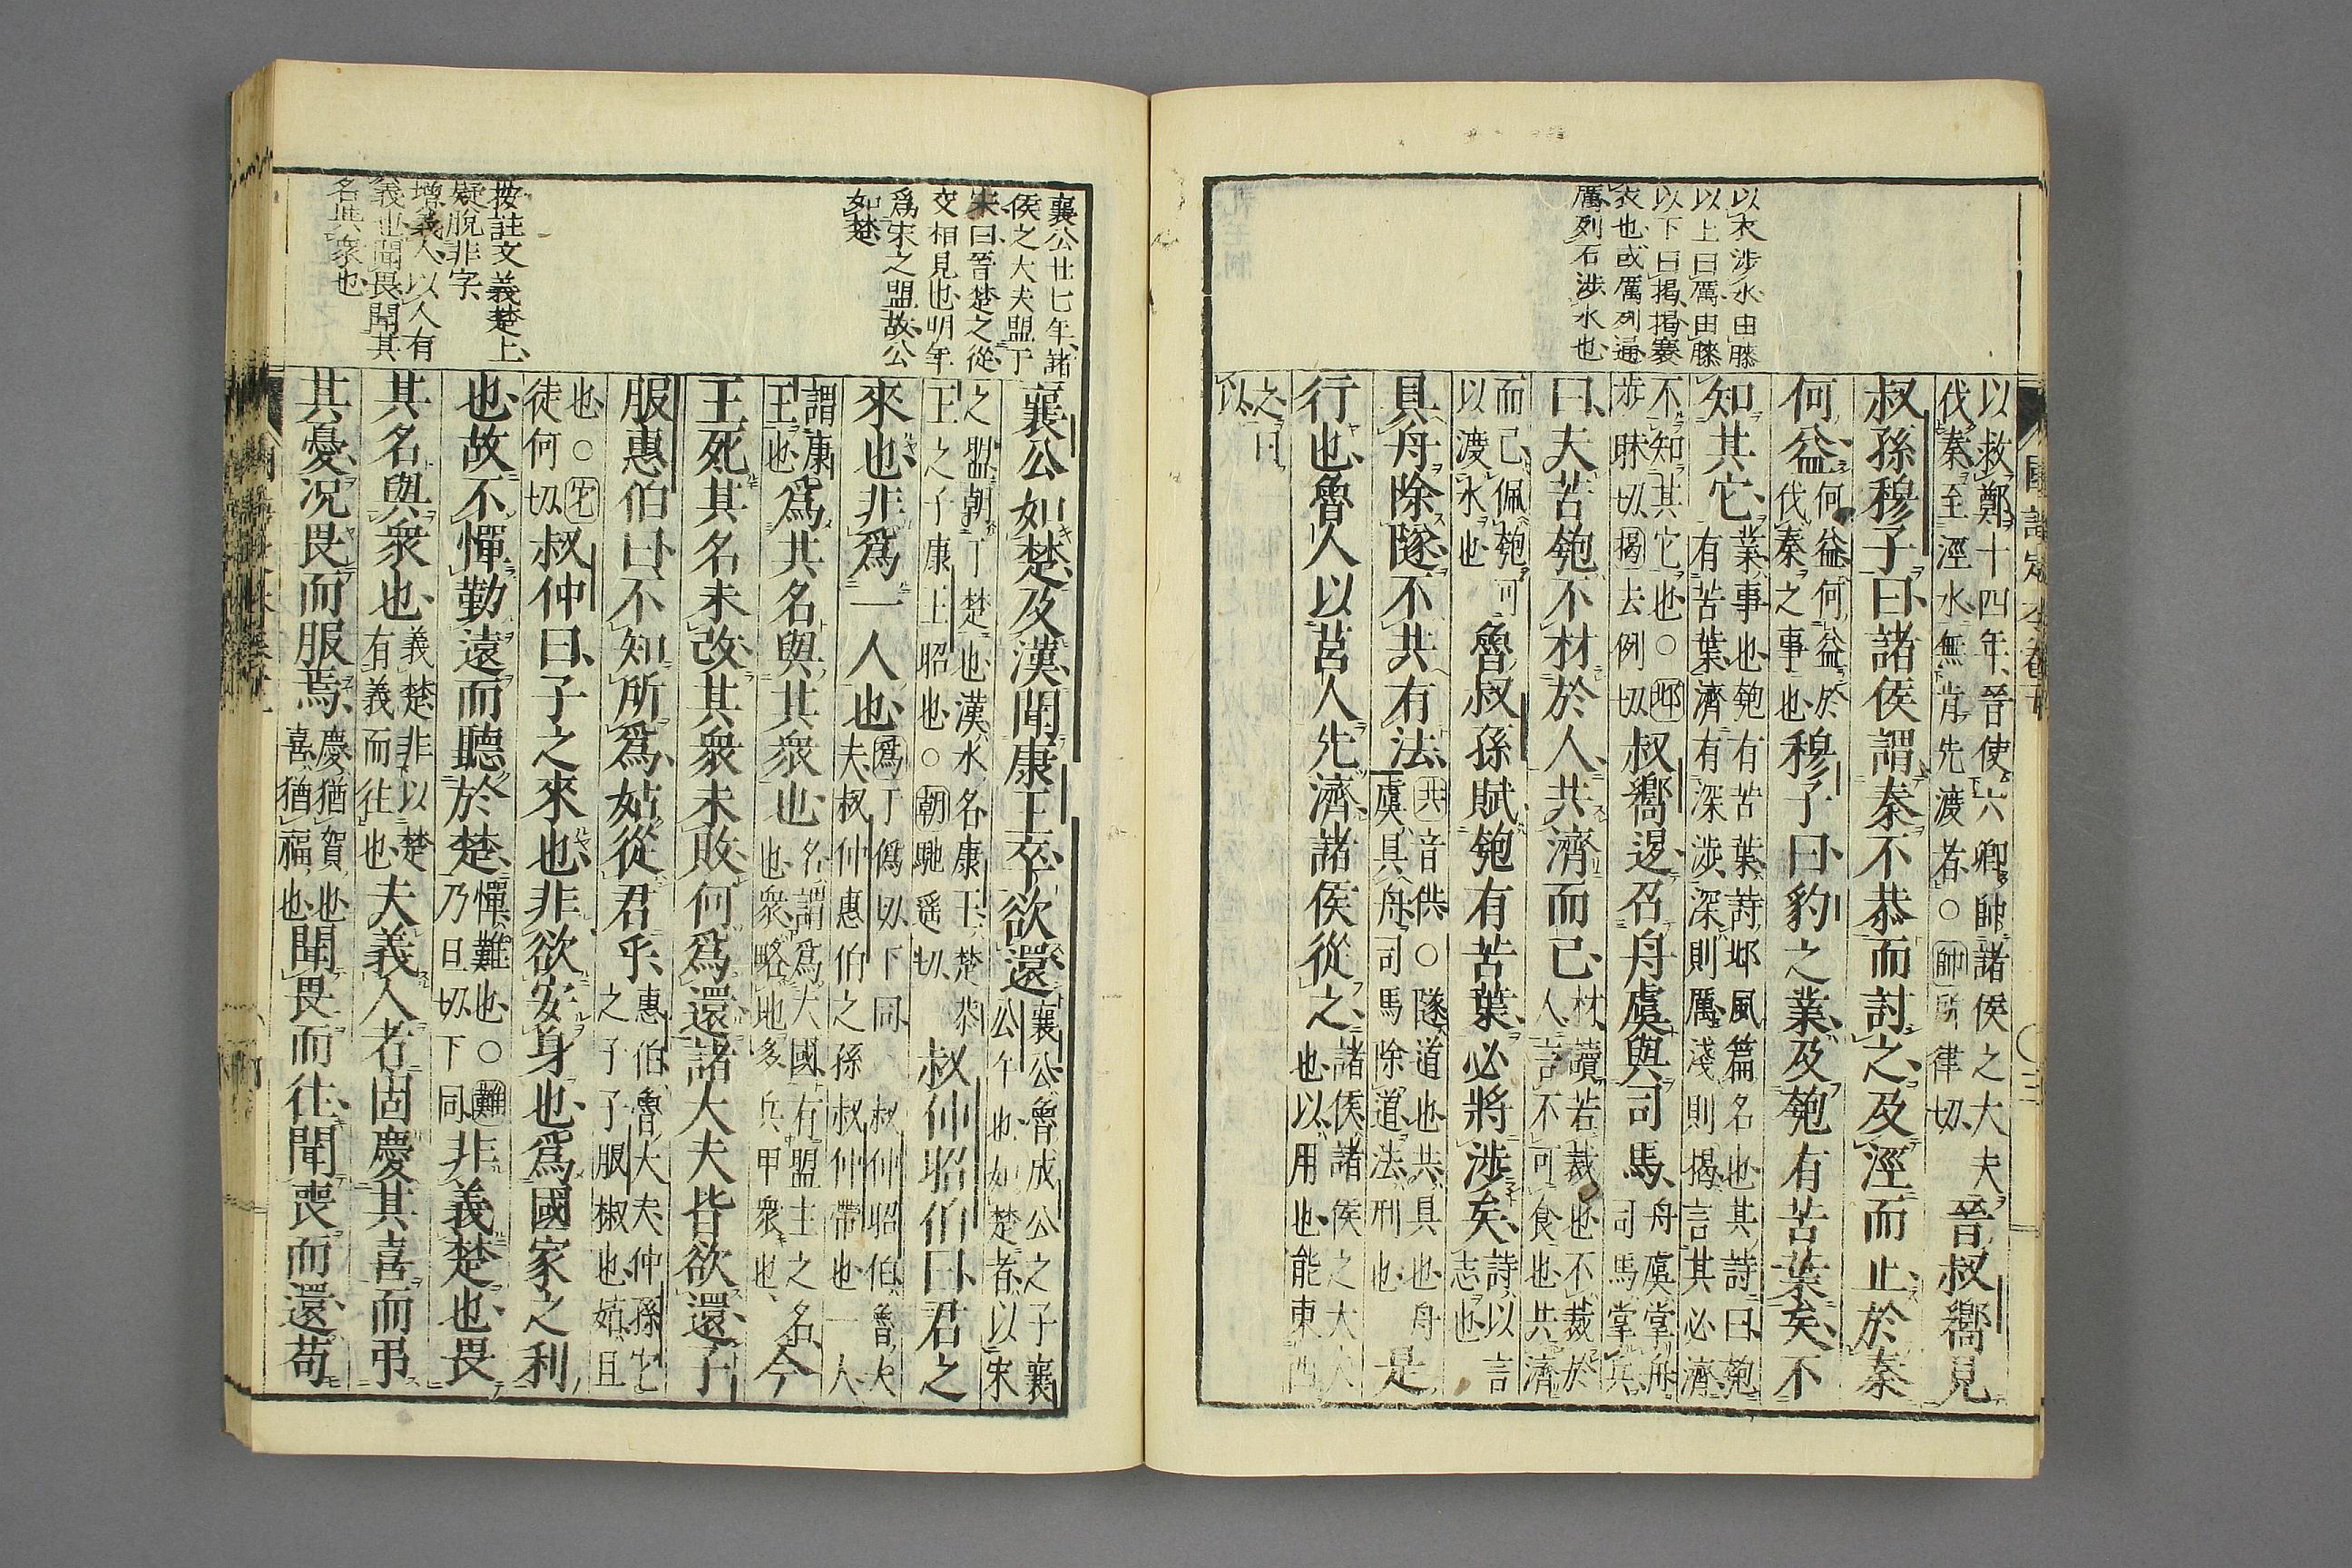 以衣涉水由膝
以上曰厲由膝
以下曰揭揭褰
衣也或厲列通
厲列石涉水也
以救鄭十四年晉使六卿帥諸侯之大夫
伐秦至涇水無肯先渡者○帥所律切
晉叔嚮見
叔孫穆子曰諸侯謂秦不恭而討之及涇而止於秦
何益
何益何益於
伐秦之事也
穆子曰豹之業及匏有苦葉矣不
知其它
業事也匏有苦葉詩邶風篇名也其詩曰匏
有苦葉濟有深涉深則厲淺則揭言其必濟
不知其它也○邶
步昧切揭去例切
叔嚮退召舟虞與司馬
舟虞掌舟
司馬掌兵
曰夫苦匏不材於人共濟而已
材讀若裁也不裁於
人言不可食也共濟
而已佩匏可
以渡水也
魯叔孫賦匏有苦葉必將涉矣
詩以言
志也
具舟除隧不共有法
共音供○隧道也共具也舟
虞具舟司馬除道法刑也
是
行也魯人以莒人先濟諸侯從之
諸侯諸侯之大夫
也以用也能東西
之曰
以
襄公廿七年諸
侯之大夫盟于
宋曰晉楚之從
交相見也明年
爲宋之盟故公
如楚
按註文義楚上
疑脫非字
增義人以人有
義也聞畏聞其
名與衆也
襄公如楚及漢聞康王卒欲還
襄公魯成公之子襄
公午也如楚者以宋
之盟朝于楚也漢水名康王楚恭
王之子康王昭也○朝馳遥切
叔仲昭伯曰君之
來也非爲一人也
爲于僞切下同 叔仲昭伯魯大
夫叔仲惠伯之孫叔仲帶也一人
謂康
王也
爲其名與其衆也
名謂爲大國有盟主之名
也衆略地多兵甲衆也
今
王死其名未改其衆未敗何爲還諸大夫皆欲還子
服惠伯曰不知所爲姑從君乎
惠伯魯大夫仲孫它
之子子服椒也姑且
也○它
徒何切
叔仲曰子之來也非欲安身也爲國家之利
也故不憚勤遠而聽於楚
憚難也○難
乃旦切下同
非義楚也畏
其名與衆也
義楚非以楚
有義而往也
夫義人者固慶其喜而弔
其憂况畏而服焉
慶猶賀也
喜猶福也
聞畏而往聞喪而還苟